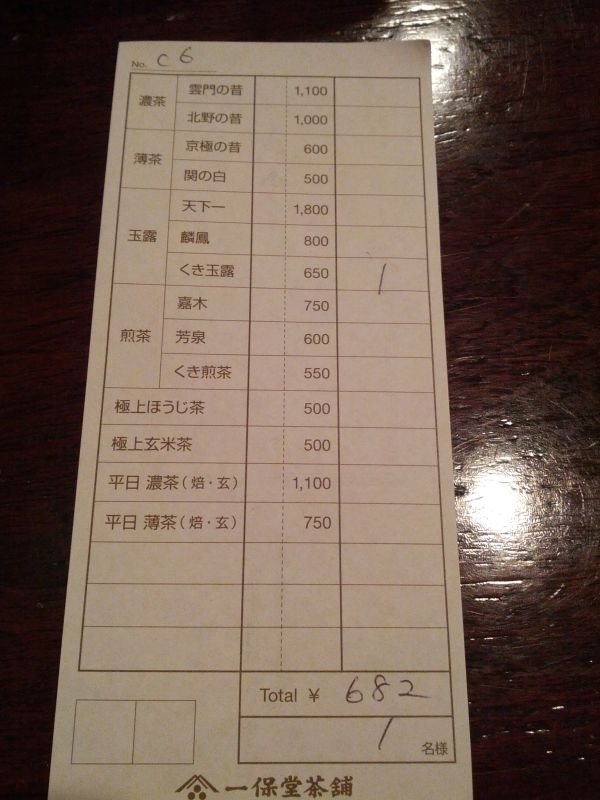 No. C6
濃茶 雲門の昔 1,100
北野の昔 1,000
薄茶 京極の昔 600
関の白 500
玉露 天下一 1,800
麟鳳 800
くき玉露 650 1
煎茶 嘉木 750
芳泉 600
くき煎茶 550
極上ほうじ茶 500
極上玄米茶 500
平日 濃茶(焙・玄) 1,100
平日 薄茶(焙・玄) 750
Total ¥ 682
1 名様
一保堂茶舗